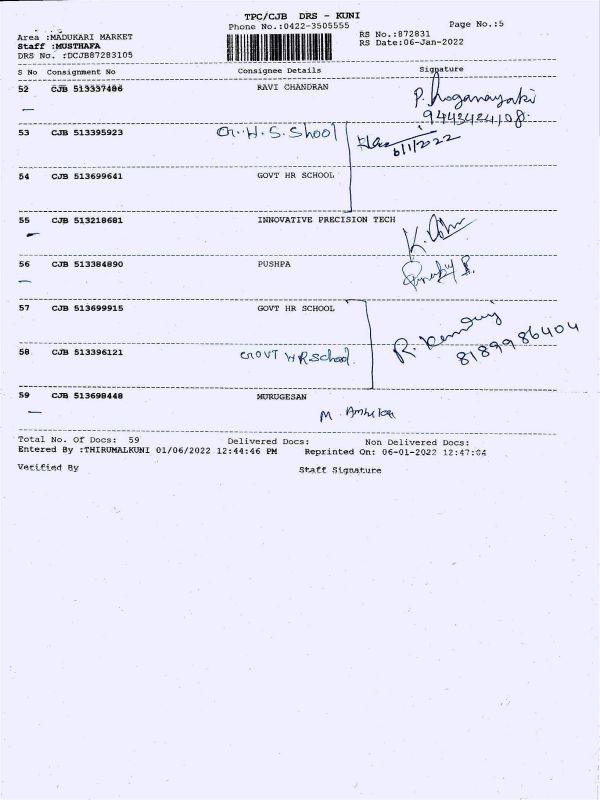 TPC/CJB DRS - KUNI
Phone No.:0422-3505555
Page No.:5
Area :MADUKARI MARKET
RS No.:872831
Staff :MUSTHAFA
RS Date:06-Jan-2022
DRS No. :DCJB87283105
S No Consignment No Consignee Details Signature
52 CJB 513337486 RAVI CHANDRAN
P.
9443424108
53 CJB 513395923 H.S. Shool
6/1/2022
54 CJB 513699641 GOVT HR SCHOOL
55 CJB 513218681 INNOVATIVE PRECISION TECH
K.
56 CJB 513384890 PUSHPA
57 CJB 513699915 GOVT HR SCHOOL
R.
8189986404
58 CJB 513396121 GOVT HR School
59 CJB 513698448 MURUGESAN
M.
Total No. Of Docs: 59 Delivered Docs: Non Delivered Docs:
Entered By :THIRUMALKUNI 01/06/2022 12:44:46 PM Reprinted On: 06-01-2022 12:47:04
Verified By Staff Signature